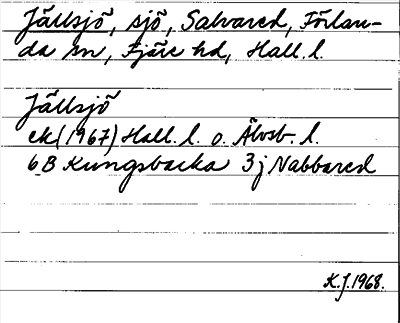 Jällsjö, sjö, Salvared, Förlan-
da sn, Fjäre hd, Hall. l.
Jällsjö
ek (1967) Hall. l. o. Älvsb. l.
6B Kungsbacka 3j Nabbared
K.J. 1968.